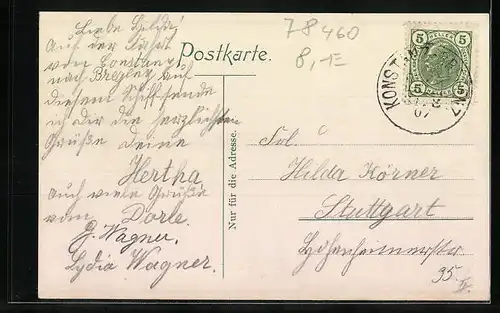 Liebe Hilda!
Auf der Fahrt
von Constanz
nach Bregenz auf
diesem Schiff sende
ich dir die herzlichsten
Grüße deine
Hertha,
auch viele Grüße
von Dorle.
G. Wagner.
Lydia Wagner.
78460
8,-E
Postkarte.
Nur für die Adresse.
5 HELLER 5
5 5
KONST
8
07
Frl.
Hilda Körner
Stuttgart
Hohenheimerstr.
95. II.